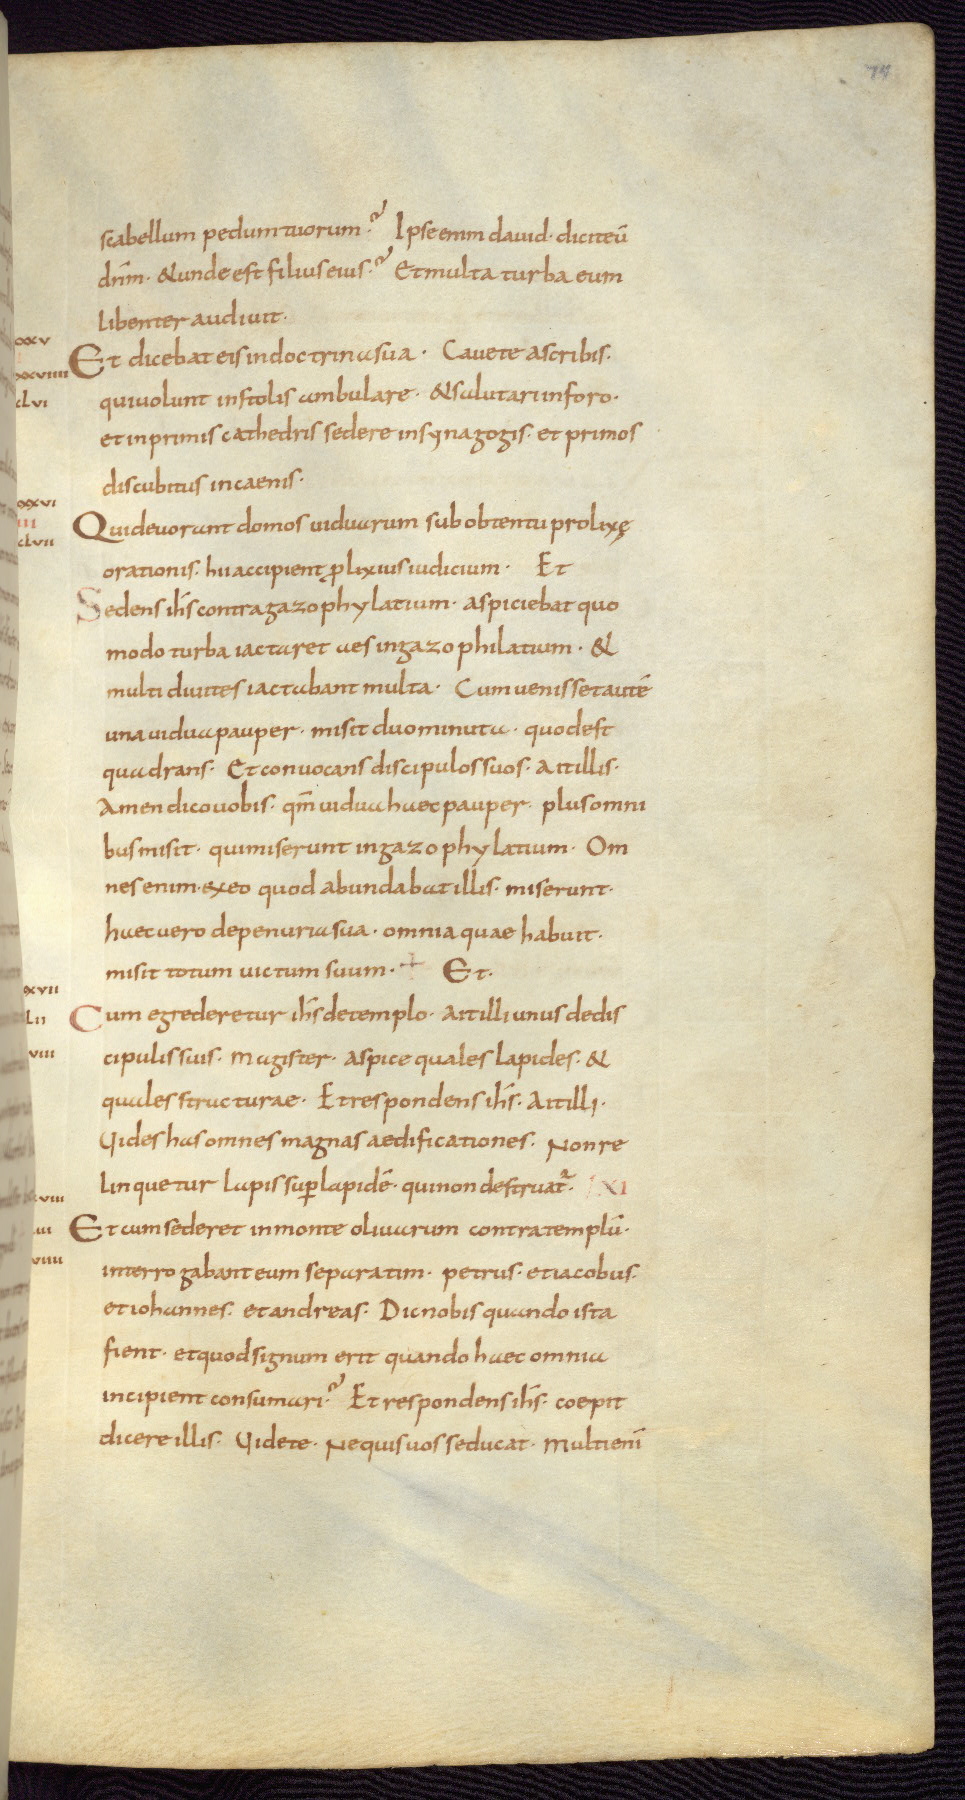 77
scabellum pedum tuorum? Ipse enim dauid· dicit eū
dnm̄· & unde est filius eius? Et multa turba eum
libenter audiuit·
Et dicebat eis in doctrina sua· Cauete a scribis·
qui uolunt in stolis ambulare· & salutari in foro·
et in primis cathedris sedere in synagogis· et primos
discubitus in caenis·
Qui deuorant domos uiduarum sub obtentu prolixę
orationis· hii accipient ꝓlixius iudicium· Et
Sedens ih̄s contra gazophylatium· aspiciebat quo
modo turba iactaret aes in gazophilatium· &
multi diuites iactabant multa· Cum uenisset autē
una uidua pauper· misit duo minuta· quod est
quadrans· Et conuocans discipulos suos· ait illis·
Amen dico uobis· qm̄ uidua haec pauper· plus omni
bus misit· qui miserunt in gazophylatium· Om
nes enim· ex eo quod abundabat illis· miserunt·
haec uero de penuria sua· omnia quae habuit·
misit totum uictum suum· + Et·
Cum egrederetur ih̄s de templo· ait illi unus de dis
cipulis suis· magister· aspice quales lapides· &
quales structurae· Et respondens ih̄s· ait illi·
Vides has omnes magnas aedificationes· Non re
linquetur lapis suꝑ lapidē· qui non destruat᷑· XI
Et cum sederet in monte oliuarum contra templū·
interrogabant eum separatim· petrus· et iacobus·
et iohannes· et andreas· Dic nobis quando ista
fient· et quod signum erit quando haec omnia
incipient consumari? Et respondens ih̄s· coepit
dicere illis· Videte· Ne quis uos seducat· multi enī